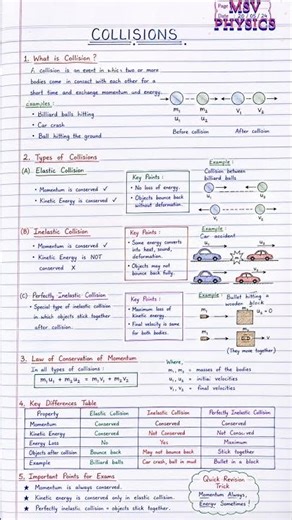 Page
Date 20 / 05 / 24
MSV
PHYSICS
COLLISIONS
1. What is Collision ?
A collision is an event in which two or more
bodies come in contact with each other for a
short time and exchange momentum and energy.
Examples :
• Billiard balls hitting
• Car crash
• Ball hitting the ground
m₁ m₂ v₁ v₂
u₁ u₂
Before collision After collision
2. Types of Collisions
(A) Elastic Collision
• Momentum is conserved ✓
• Kinetic Energy is conserved ✓
Key Points :
• No loss of energy.
• Objects bounce back
without deformation.
Example :
Collision between
billiard balls
(B) Inelastic Collision
• Momentum is conserved ✓
• Kinetic Energy is NOT
conserved ✗
Key Points :
• Some energy converts
into heat, sound,
deformation.
• Objects may not
bounce back fully.
Example :
Car accident
u₁ u₂
(C) Perfectly Inelastic Collision
• Special type of inelastic collision
in which objects stick together
after collision.
Key Points :
• Maximum loss of
kinetic energy.
• Final velocity is same
for both bodies.
Example : Bullet hitting a
wooden block
m₁ m₂ u₂ = 0
m₁
(They move together)
3. Law of Conservation of Momentum
In all types of collisions :
m₁u₁ + m₂u₂ = m₁v₁ + m₂v₂
Where,
m₁, m₂ = masses of the bodies
u₁, u₂ = initial velocities
v₁, v₂ = final velocities
4. Key Differences Table
Property Elastic Collision Inelastic Collision Perfectly Inelastic Collision
Momentum Conserved Conserved Conserved
Kinetic Energy Conserved Not Conserved Not Conserved
Energy Loss No Yes Maximum
Objects after collision Bounce back May not bounce back Stick together
Example Billiard balls Car crash, bat in mud Bullet in a block
5. Important Points for Exams
★ Momentum is always conserved.
★ Kinetic energy is conserved only in elastic collision.
★ Perfectly inelastic collision = objects stick together.
Quick Revision
Trick
Momentum Always,
Energy Sometimes !